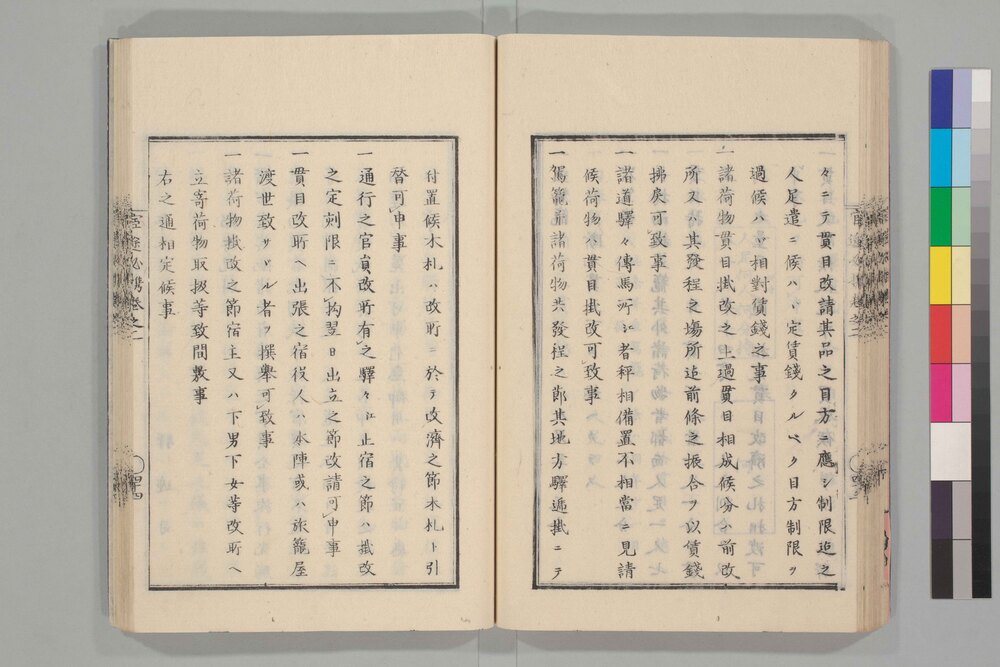 々ニテ貫目改請其品之目方ニ應シ制限迄之
人足遣ニ候ハヽ定賃錢タルヘク目方制限ヲ
過候ハヽ相對賃錢之事
一諸荷物貫目掛改之上過貫目相成候分ハ前改
所又ハ其發程之場所迄前條之振合ヲ以賃錢
拂戻可致事
一諸道驛々傳馬所江者秤相備置不相當ニ見請
候荷物ハ貫目掛改可致事
一駕籠并諸荷物共發程之節其地方驛遞掛ニテ
付置候木札ハ改所ニ於テ改濟之節木札ト引
替可申事
一通行之官員改所有之驛々江止宿之節ハ掛改
之定刻限ニ不拘翌日出立之節改請可申事
一貫目改所ヘ出張之宿役人ハ本陣或ハ旅籠屋
渡世致サヽル者ヲ撰擧可致事
一諸荷物掛改之節宿主又ハ下男下女等改所ヘ
立寄荷物取扱等致間敷事
右之通相定候事